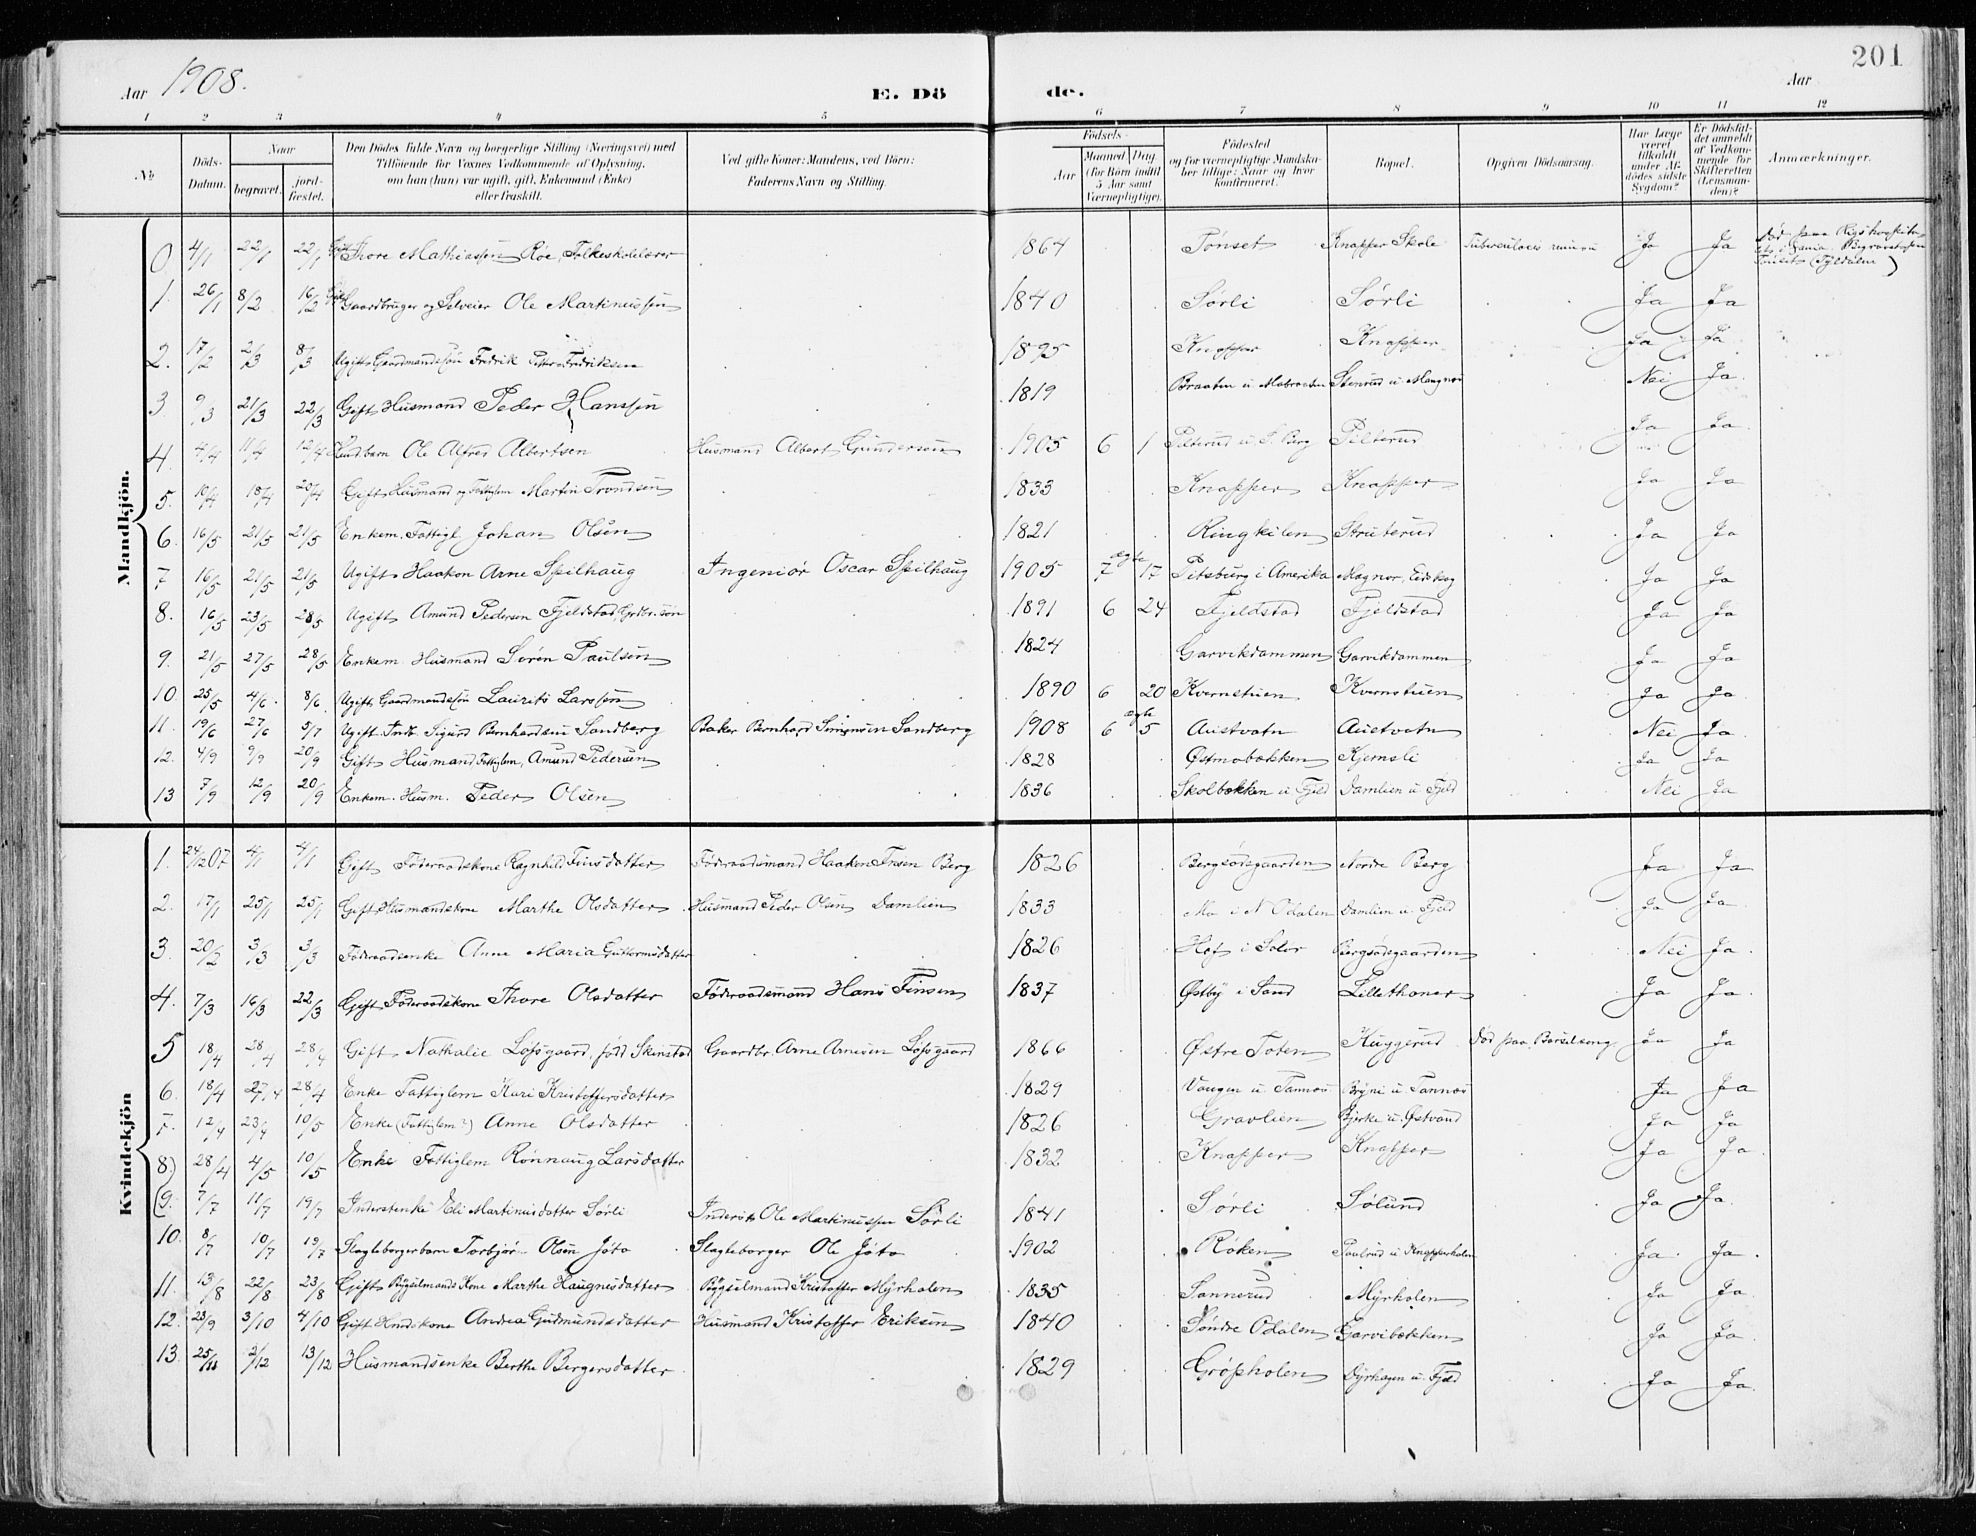 201
Aar 1908. E. Dö de. Aar
1 2 3 4 5 6 7 8 9 10 11 12
№ Döds-Datum. Naar begravet. jord-fæstet. Den Dödes fulde Navn og borgerlige Stilling (Næringsvei) med Tilföiende for Voxnes Vedkommende af Oplysning, om han (hun) var ugift, gift, Enkemand (Enke) eller fraskilt. Ved gifte Koner: Mandens, ved Börn: Faderens Navn og Stilling. Födsels- Aar Maaned Dag (for Börn indtil 5 Aar samt Værnepligtige). Födested og for værnepligtige Mandskaber tillige: Naar og hvor konfirmeret. Bopæl. Opgiven Dödsaarsag. Har Læge været tilkaldt under Afdödes sidste Sygdom? Er Dödsfaldet anmeldt af Vedkommende for Skifteretten (Lensmanden)? Anmærkninger.
Mandkjön.
0. 4/1 22/1 22/1 Gift Thore Mathiassen Röe, Folkeskolelærer 1864 Tönset Knapper Skole Tuberculosis Ja Ja Död paa Rigshospitalet
1. 26/1 8/2 16/2 Gift Gaardbruger og Selveier Ole Martinussen 1840 Sörli Sörli Ja Ja
2. 17/2 2/3 8/3 Ugift Gaardmandssön Fredrik Petter Fredriksen 1895 Knapper Knapper Ja Ja
3 9/3 21/3 22/3 Gift Husmand Peder Hanssen 1819 Braaten u Mobraaten Stenrud u Mangnor Nei Ja
4. 4/4 11/4 12/4 Ole Alfred Albertsen Husmand Albert Gundersen 1905 6 1 Pilterud u. S. Berg Pilterud Ja Ja
5. 10/4 18/4 20/4 Gift Husmand og Fattiglem Martin Trondsen 1833 Knapper Knapper Ja Ja
6. 16/5 21/5 21/5 Enkem. Fattigl Johan Olsen 1821 Ringkilen Struterud Ja Ja
7 16/5 21/5 21/5 Ugift Haakon Arne Spilhaug Ingeniör Oscar Spilhaug 1905 7 ægte 17 Pitsburg i Amerika Magnor, Eidskog Ja Ja
8. 16/5 23/5 28/5 Ugift Amund Pedersen Fjeldstad, Grdbr. sön 1891 6 24 Fjeldstad Fjeldstad Ja Ja
9. 21/5 27/5 28/5 Enkem. Husmand Sören Paulsen 1824 Garvikdammen Garvikdammen Ja Ja
10. 25/5 4/6 8/6 Ugift Gaardmandssön Laurits Larssen 1890 6 20 Kvernstuen Kvernstuen Ja Ja
11. 19/6 27/6 5/7 Ugift Indb. Sigurd Bernhardsen Sandberg Baker Bernhard Simensen Sandberg 1908 6 ægte 5 Austvatn Austvatn Nei Ja
12. 4/9 9/9 20/9 Gift Husmand Fattiglem, Amund Pedersen 1828 Östmobækken Kjernsli Ja Ja
13 7/9 12/9 20/9 Enkem. Husm. Peder Olsen 1836 Skolbekken u Fjeld Damlien u Fjeld Nei Ja
Kvindekjön
1. 24/12 07 4/1 4/1 Gift Föderaadskone Ragnhild Finsdatter Föderaadsmand Haaken Berg 1826 Bergsödegaarden Nordre Berg Ja Ja
2. 17/1 25/1 25/1 Gift Husmandskone Marthe Olsdatter Husmand Peder Olsen Damlien 1833 Mo i N Odalen Damlien u. Fjeld Ja Ja
3. 20/2 3/3 3/3 Föderaadsenke Anne Maria Guttormsdatter 1826 Hof i Solör Bergsödegaarden Nei Ja
4. 7/3 16/3 22/3 Gift Föderaadskone Thore Olsdatter Föderaadsmand Hans Finsen 1837 Östby i Sand Lillethoner Ja Ja
5 18/4 28/4 28/4 Gift Nathalie Lofsgaard, född Skinstad Gaardbr. Arne Arnesen Lofsgaard 1866 Östre Toten Kuggerud Död paa Barselseng Ja Ja
6. 18/4 27/4 28/4 Enke Fattiglem Kari Kristoffersdatter 1829 Vangen u Tannæs Bryni u Tannæs Ja Ja
7. 12/4 23/4 10/5 Enke (Fattiglem?) Anne Olsdatter 1826 Gravlien Bjerke u. Östvand Ja Ja
8.) 28/4 4/5 10/5 Enke Fattiglem Rönnaug Larsdatter 1832 Knapper Knapper Ja Ja
(9. 7/7 11/7 19/7 Inderstenke Eli Martinusdatter Sörli Inderst Ole Martinussen Sörli 1841 Sörli Sölund Ja Ja
10. 8/7 10/7 19/7 Slagteborgerbarn Torbjör Olsen Jöto Slagteborger Ole Jöto 1902 Röken Paalrud u Knapperholen Ja Ja
11. 13/8 22/8 23/8 Gift Bygselmands Kone Marthe Haugnesdatter Bygselmand Kristoffer Myrholen 1835 Sannerud Myrholen Ja Ja
12. 23/9 3/10 4/10 Gift Hmdskone Andrea Gudmundsdatter Husmand Kristoffer Eriksen 1840 Söndre Odalen Garvibækken Ja Ja
13. 25/11 2/12 13/12 Husmandsenke Berthe Bergersdatter 1829 Grösholen Dyrhagen u. Fjeld Ja Ja